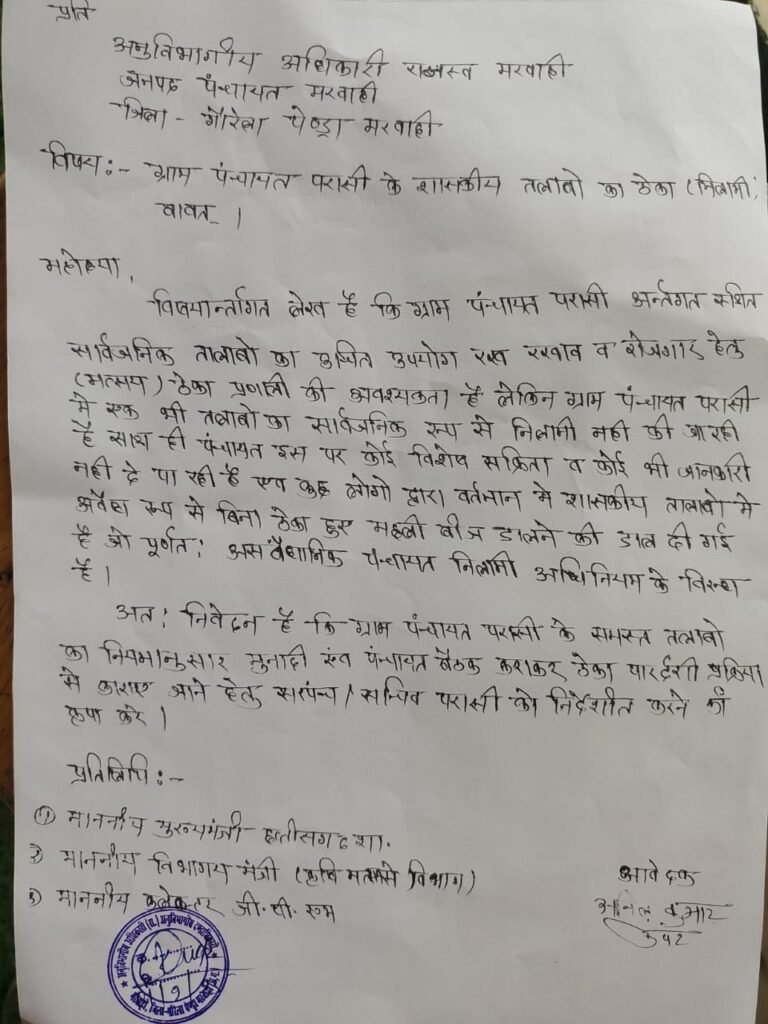 प्रति
अनुविभागीय अधिकारी राजस्व मरवाही
जनपद पंचायत मरवाही
जिला - गौरेला पेण्ड्रा मरवाही
विषय:- ग्राम पंचायत परासी के शासकीय तलाबो का ठेका (निलामी)
बावत् ।
महोदया,
विषयार्न्तगत लेख है कि ग्राम पंन्चायत परासी अर्न्तगत स्थित
सार्वजनिक तालाबो का उचित उपयोग रख रखाव व रोजगार हेतु
(मत्सय) ठेका प्रणाली की अवश्यकता है लेकिन ग्राम पंन्चायत परासी
मे एक भी तलाबो का सार्वजनिक रूप से निलामी नही की जा रही
है साथ ही पंचायत इस पर कोई विशेष सक्रिता व कोई भी जानकारी
नही दे पा रही है एवं कुछ लोगो द्वारा वर्तमान मे शासकीय तालाबो मे
अवैध रूप से बिना ठेका हुए मछली बीज डालने की डाल दी गई
है जो पूर्णत: असंवैधानिक पंन्चायत निलामी अधिनियम के विरूध
है ।
अत: निवेदन है कि ग्राम पंन्चायत परासी के समस्त तलाबो
का नियमानुसार मुनादी एंव पंचायत बैठक कराकर ठेका पारर्दशी प्रक्रिया
से कराए जाने हेतु सरपंच / सचिव परासी को निर्देशीत करने की
कृपा करे ।
प्रतिलिपि:-
(1) माननीय मुख्यमंत्री छत्तीसगढ शा.
2) माननीय विभागय मंत्री (कृषि मत्सय विभाग)
3) माननीय कलेक्टर जी. पी. एम
आवेदक
अनिल कुमार